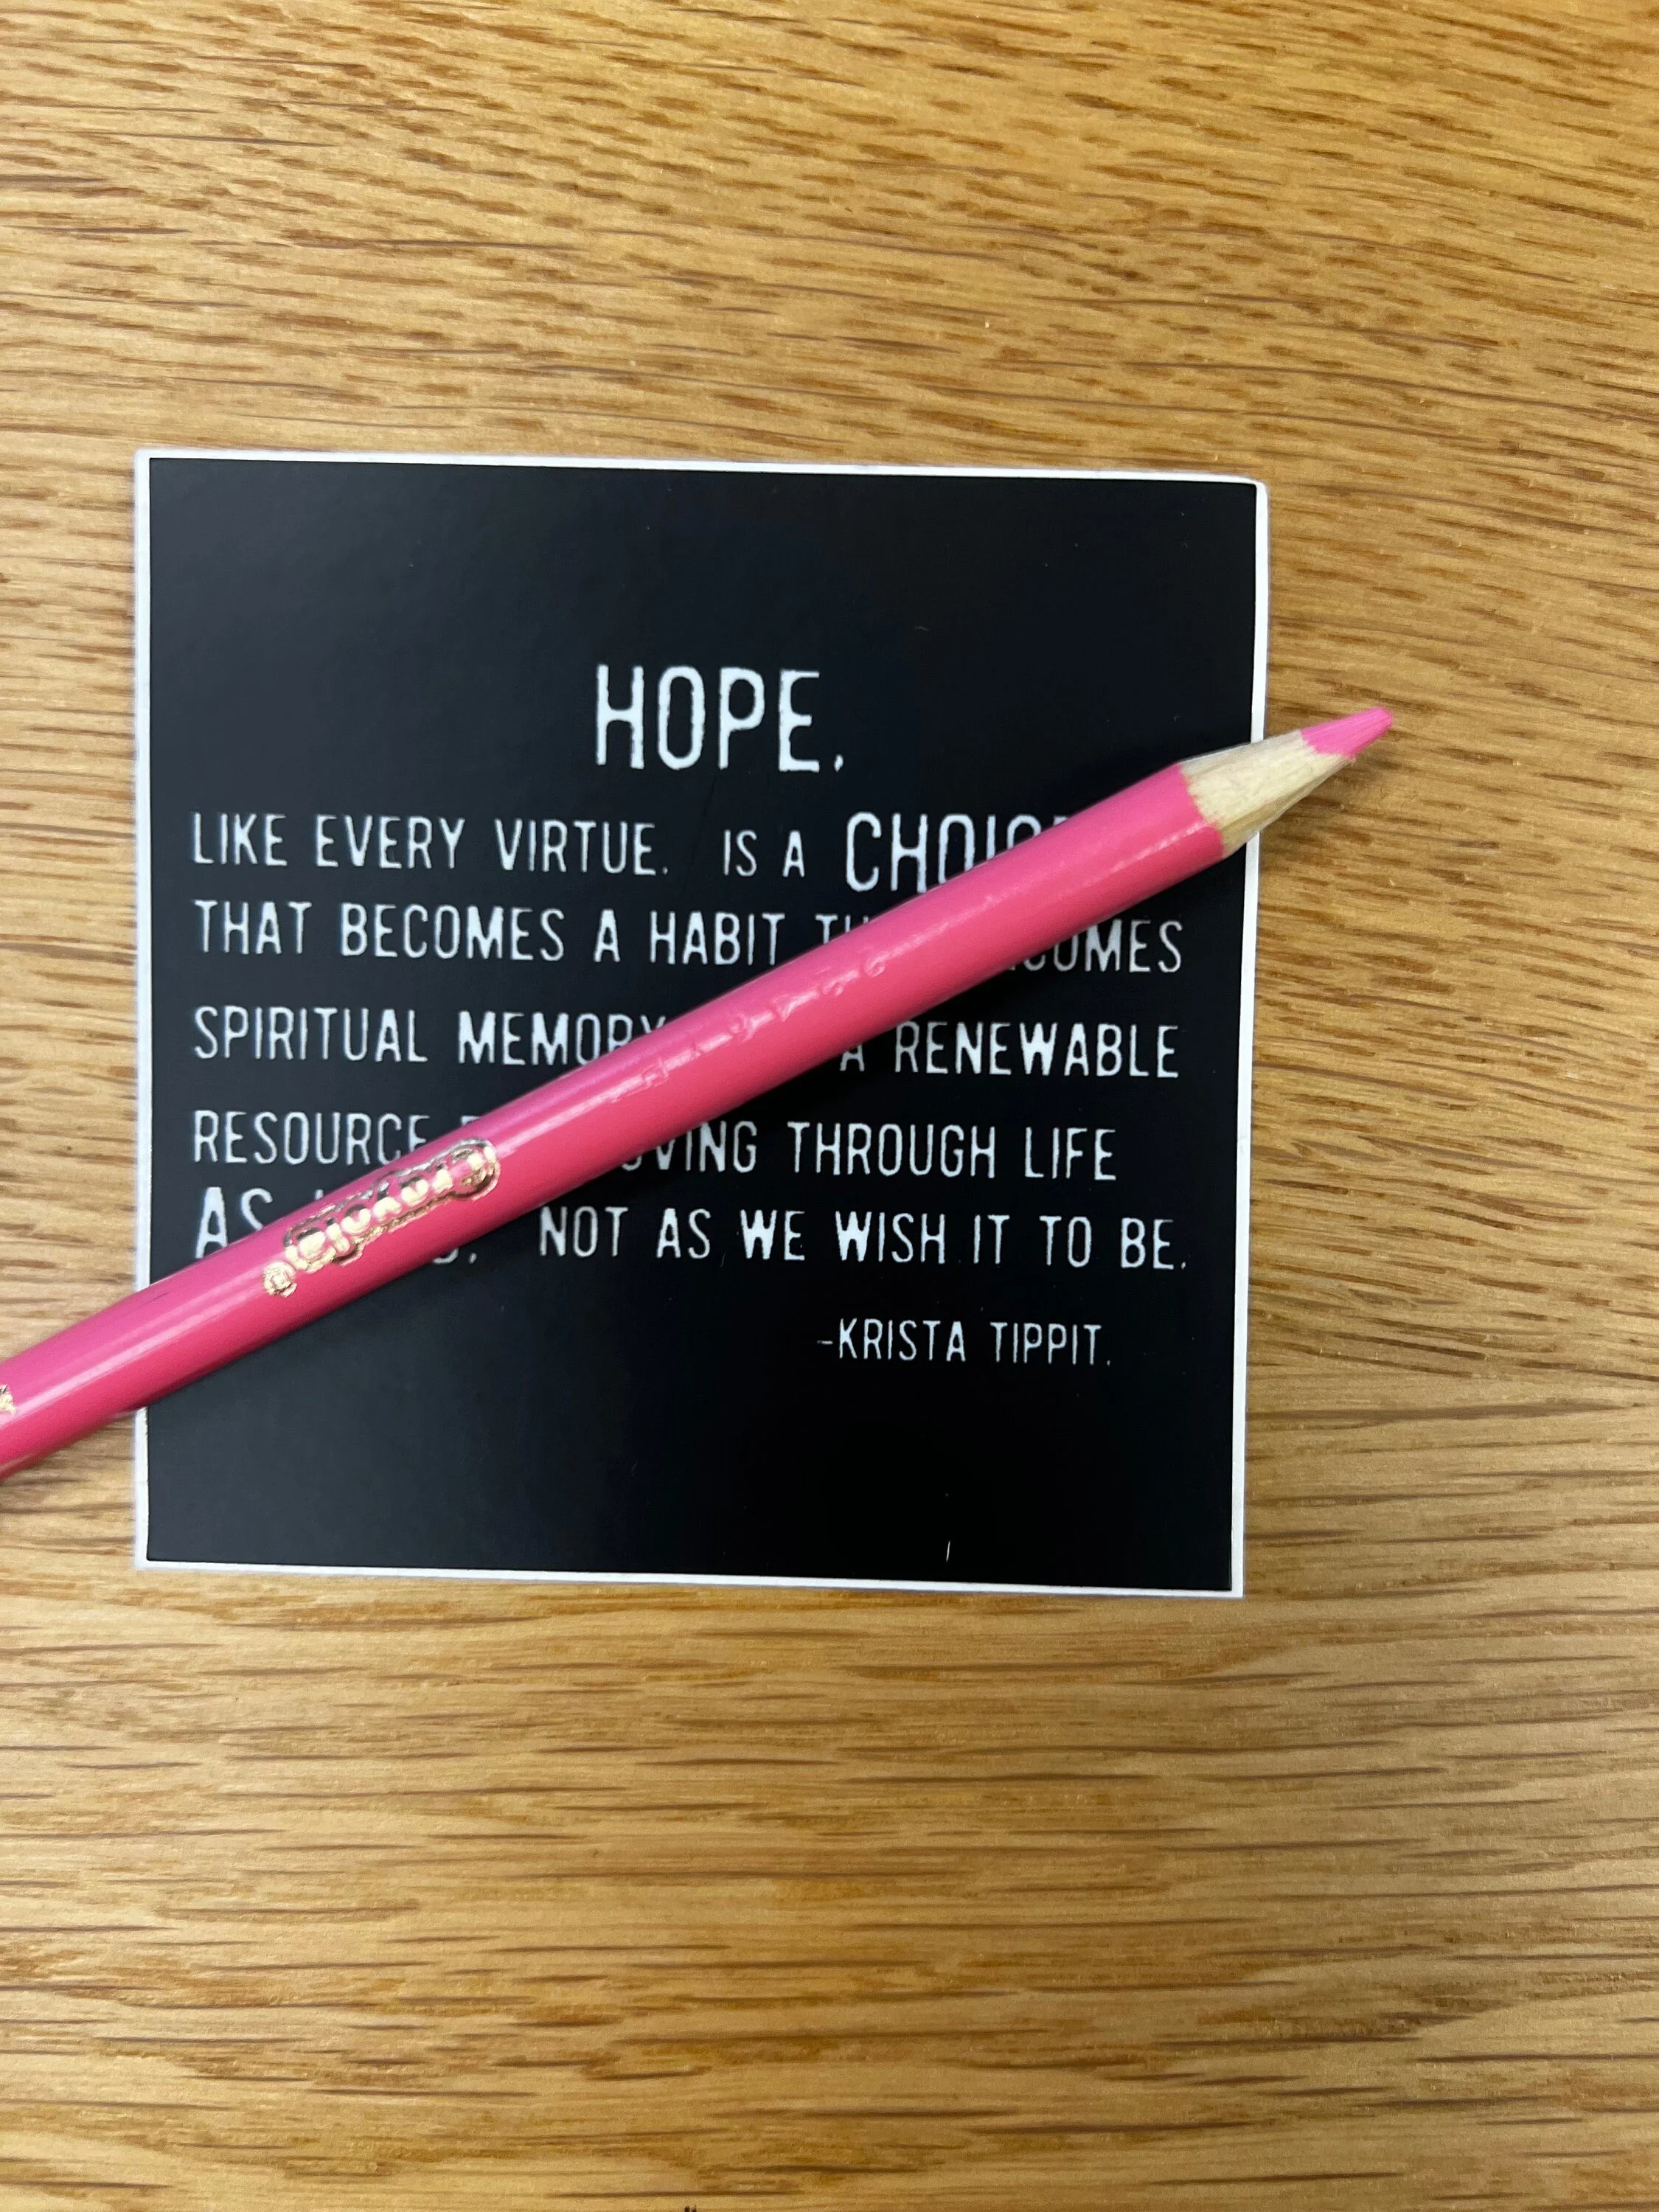 HOPE,
LIKE EVERY VIRTUE, IS A CHOICE
THAT BECOMES A HABIT
SPIRITUAL MEMORY A RENEWABLE
RESOURCE MOVING THROUGH LIFE
AS NOT AS WE WISH IT TO BE.
-KRISTA TIPPIT.
Crayola